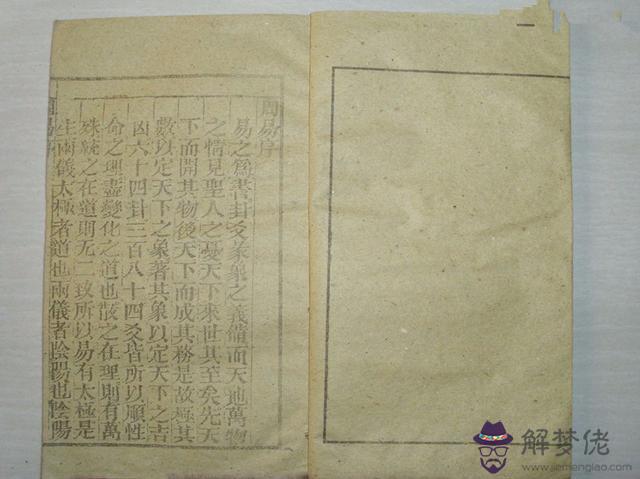 周易序
易之為書卦爻彖象之義備而天地萬物
之情見聖人之憂天下來世其至矣先天
下而開其物後天下而成其務是故極其
數以定天下之象著其象以定天下之吉
凶六十四卦三百八十四爻皆所以順性
命之理盡變化之道也散之在理則有萬
殊統之在道則无二致所以易有太極是
生兩儀太極者道也兩儀者陰陽也陰陽
周易序
解梦佬
www.jiemenglao.com